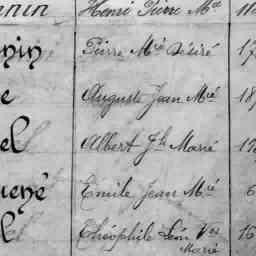 Henri Pierre Mie
nin Pierre Mie Désiré 17
e Auguste Jean Mie 18
el Albert Jh Marie
uené Emile Jean Mie 6
l Théophile Léon Vor 16
Marie